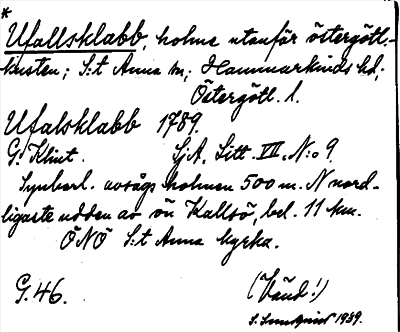 *
Ufallsklabb, holme utanför östergötl.-
kusten; S:t Anna sn; Hammarkinds hd;
Östergötl. l.
Ufalsklabb 1789.
G. Klint. SjA, Sitt. VII, N:o 9
Synberl. avsågs holmen 500 m. N nord-
ligaste udden av ön Kallsö, bel. 11 km.
ÖNÖ S:t Anna kyrka.
G. 46. (Vänd!)
S. Sundqvist 1939.